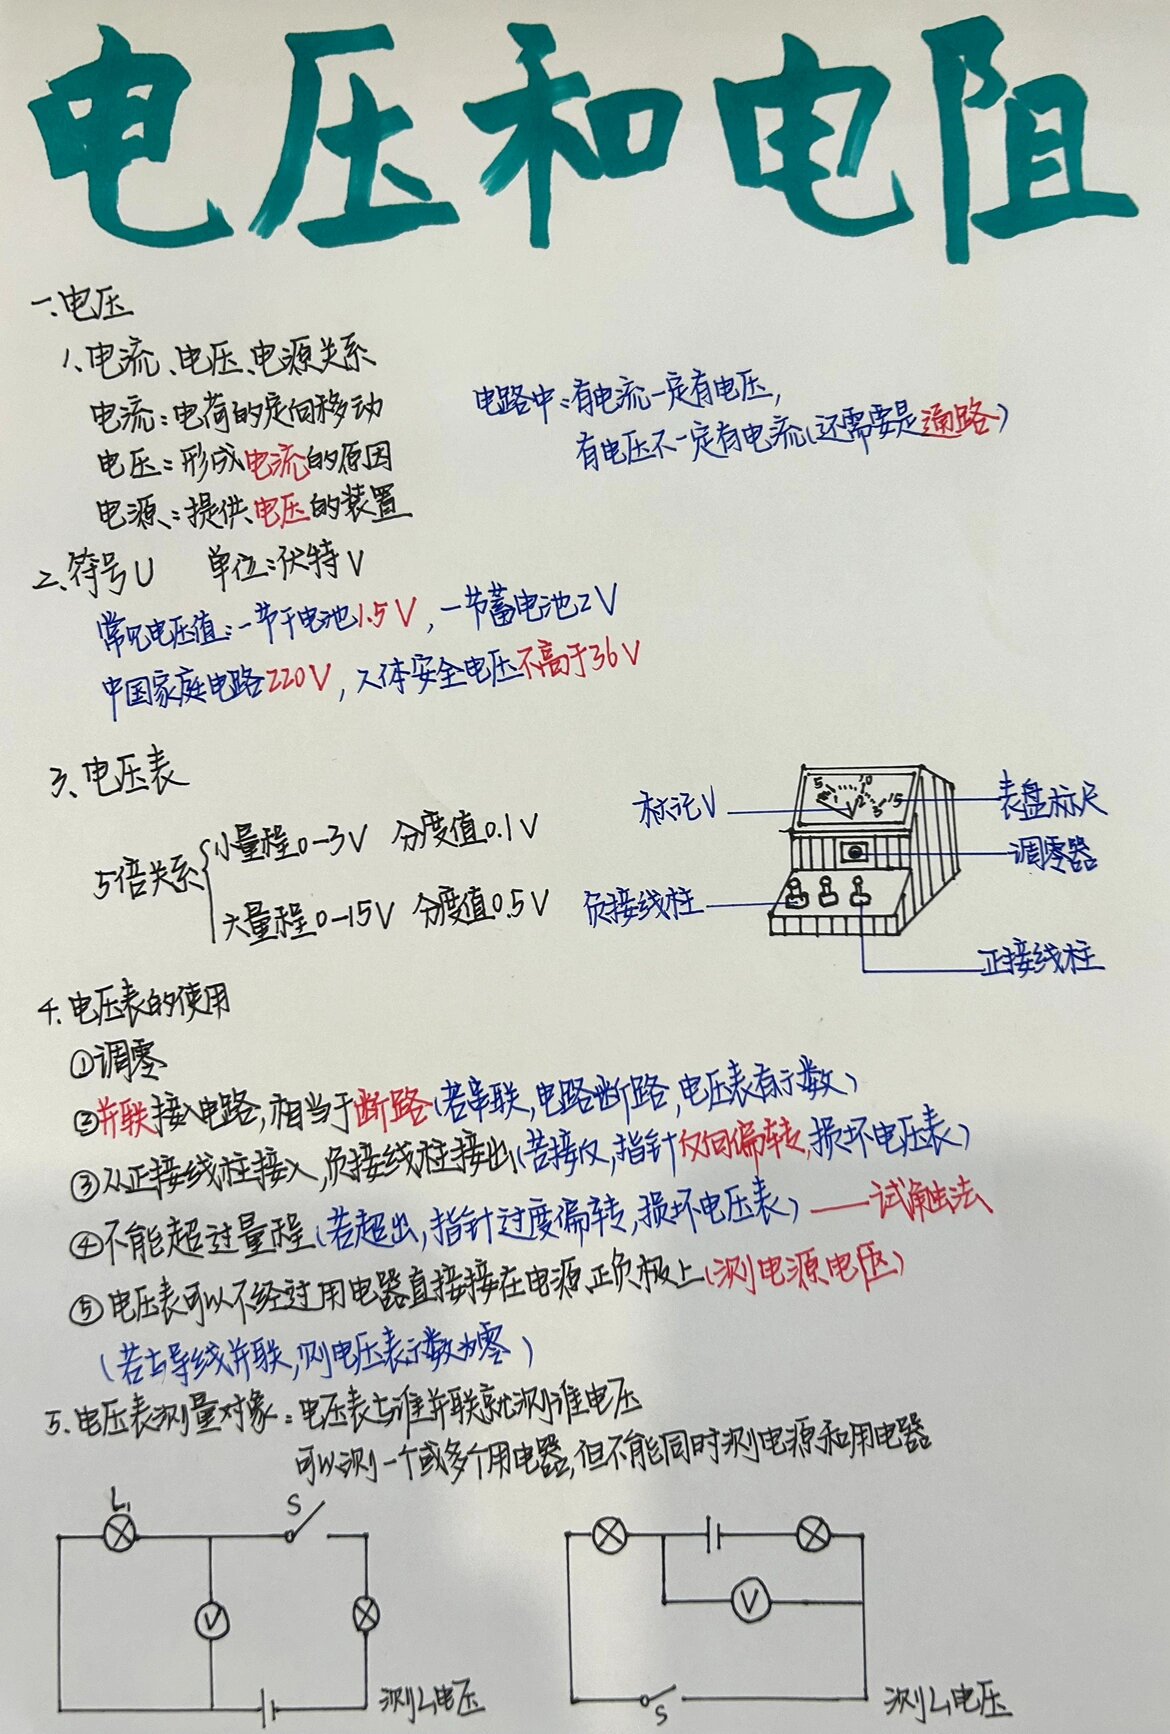 电压和电阻
一.电压
1、电流、电压、电源关系
电流:电荷的定向移动
电压:形成电流的原因
电源:提供电压的装置
电路中:有电流一定有电压,
有电压不一定有电流(还需要是通路)
2、符号U 单位:伏特V
常见电压值:一节干电池1.5V,一节蓄电池2V
中国家庭电路220V,人体安全电压不高于36V
3、电压表
5倍关系
小量程0-3V 分度值0.1V
大量程0-15V 分度值0.5V
标记V
负接线柱
5 10 15
1 2 3
表盘标尺
调零器
正接线柱
4.电压表的使用
①调零
②并联接入电路,相当于断路(若串联,电路断路,电压表有示数)
③从正接线柱接入,负接线柱接出(若接仅,指针仅向偏转,损坏电压表)
④不能超过量程(若超出,指针过度偏转,损坏电压表)——试触法
⑤电压表可以不经过用电器直接接在电源正负极上(测电源电压)
(若与导线并联,则电压表示数为零)
5.电压表测量对象:电压表与谁并联就测谁电压
可以测一个或多个用电器,但不能同时测电源和用电器
L₁
S
V
测L电压
V
S
测L电压